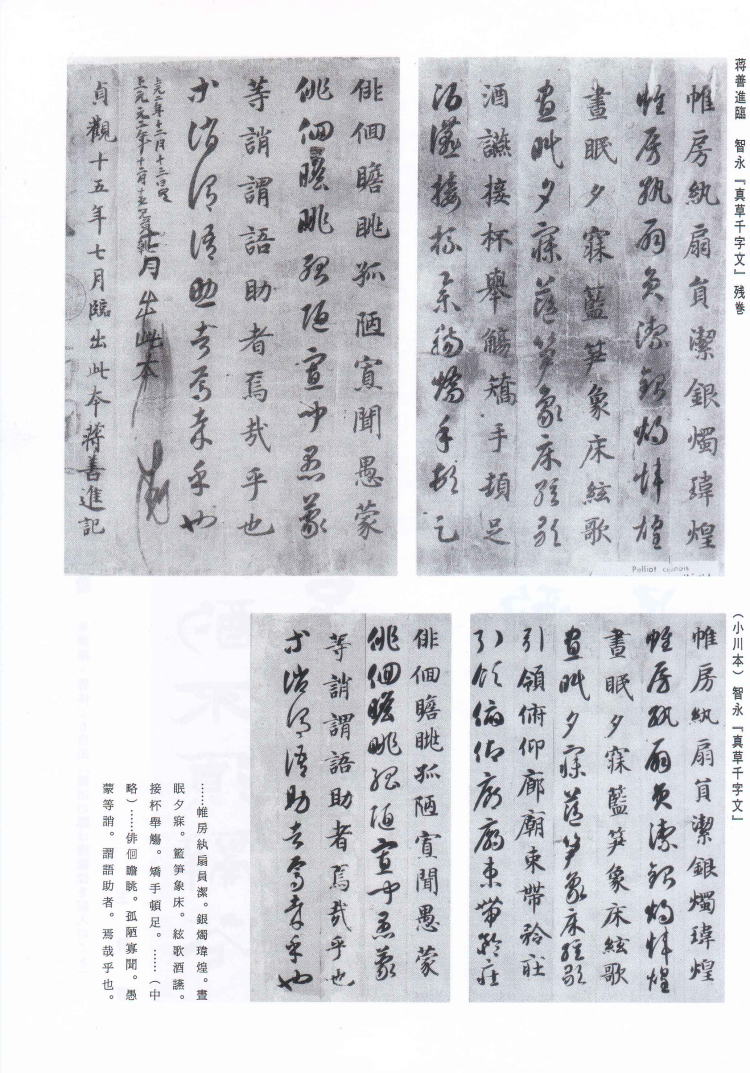 蒋善進臨　智永『真草千字文』残巻
帷房紈扇員潔銀燭瑋煌
帷房紈扇員潔銀燭瑋煌
晝眠夕寐藍笋象床絃歌
晝眠夕寐藍笋象床絃歌
酒讌接杯舉觴矯手頓足
酒讌接杯舉觴矯手頓足
Pelliot chinois
俳佪瞻眺孤陋寡聞愚蒙
俳佪瞻眺孤陋寡聞愚蒙
等誚謂語助者焉哉乎也
等誚謂語助者焉哉乎也
七月出此本
貞觀十五年七月臨出此本蒋善進記
（小川本）智永『真草千字文』
帷房紈扇員潔銀燭瑋煌
帷房紈扇員潔銀燭瑋煌
晝眠夕寐藍笋象床絃歌
晝眠夕寐藍笋象床絃歌
引領俯仰廊廟束帶矜莊
引領俯仰廊廟束帶矜莊
俳佪瞻眺孤陋寡聞愚蒙
俳佪瞻眺孤陋寡聞愚蒙
等誚謂語助者焉哉乎也
等誚謂語助者焉哉乎也
……帷房紈扇員潔。銀燭瑋煌。晝
眠夕寐。籃笋象床。絃歌酒讌。
接杯舉觴。矯手頓足。……（中
略）……俳佪瞻眺。孤陋寡聞。愚
蒙等誚。謂語助者。焉哉乎也。